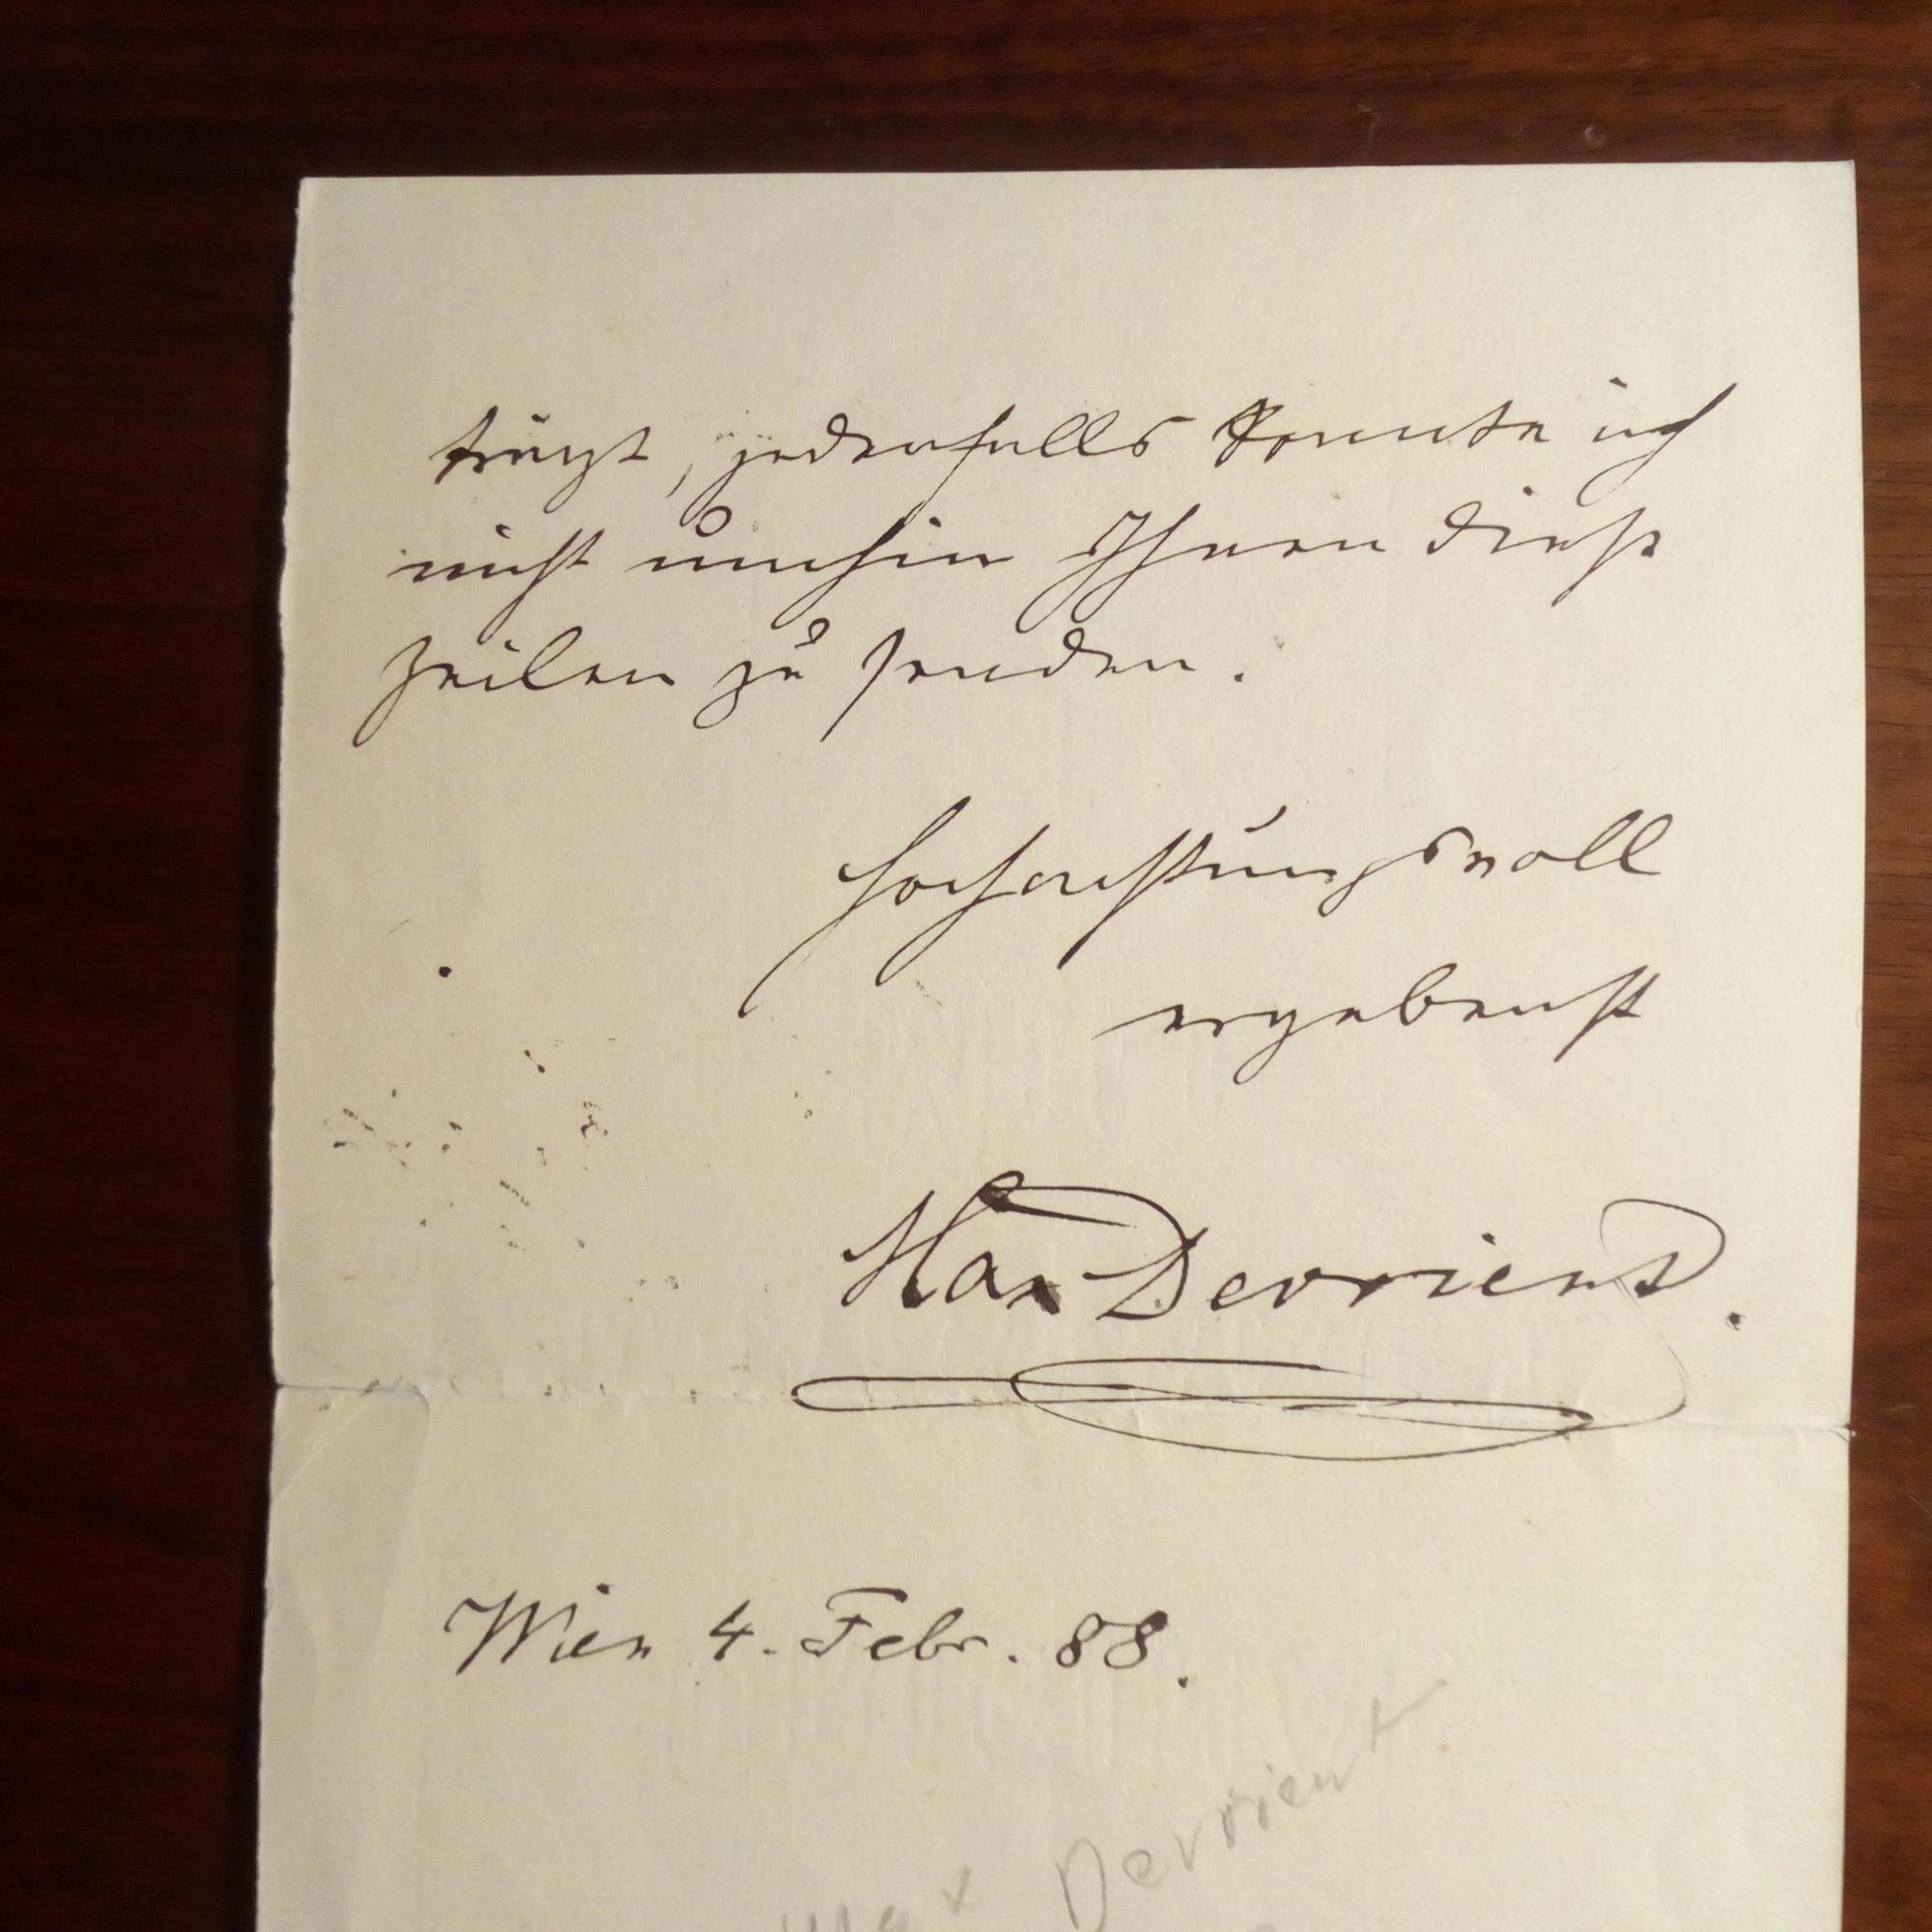 trügt, jedenfalls konnte ich
nicht umhin Ihnen diese
Zeilen zu senden.
Hochachtungsvoll
ergebenst
Max Devrient.
Wien 4. Febr. 88.
Max Devrient